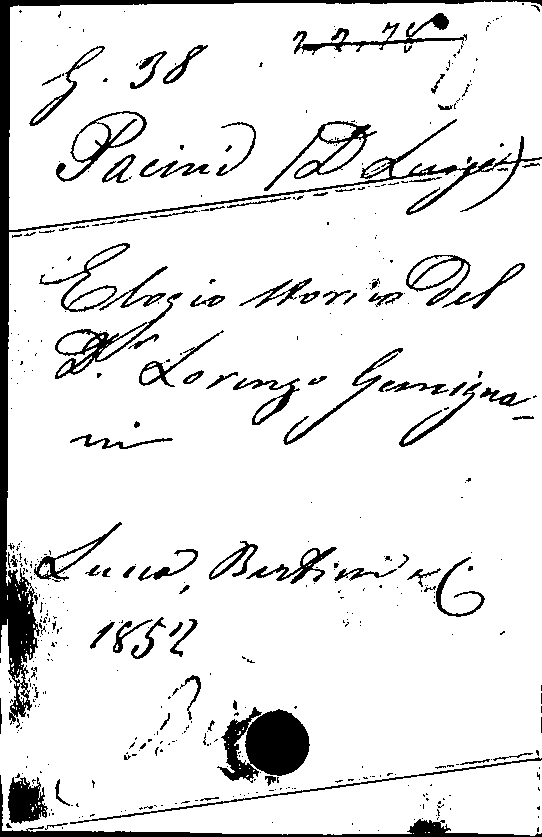 G. 38 2.2.78
Pacini (D Luigi)
Elogio storico del
D.r Lorenzo Gemigna-
ni
Lucca, Bertini e C.
1852